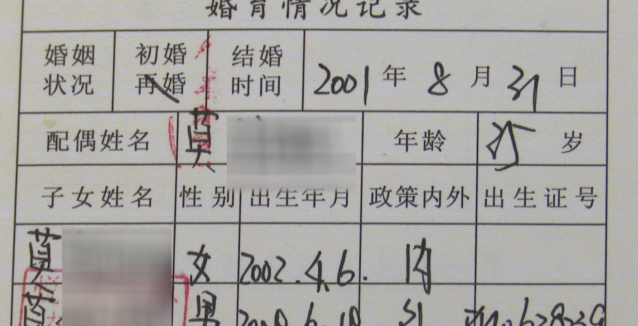 婚育情况记录
婚姻状况 初婚 再婚 结婚时间 2001年8月31日
配偶姓名 莫 年龄 25岁
子女姓名 性别 出生年月 政策内外 出生证号
莫 女 2002.4.6. 内
男